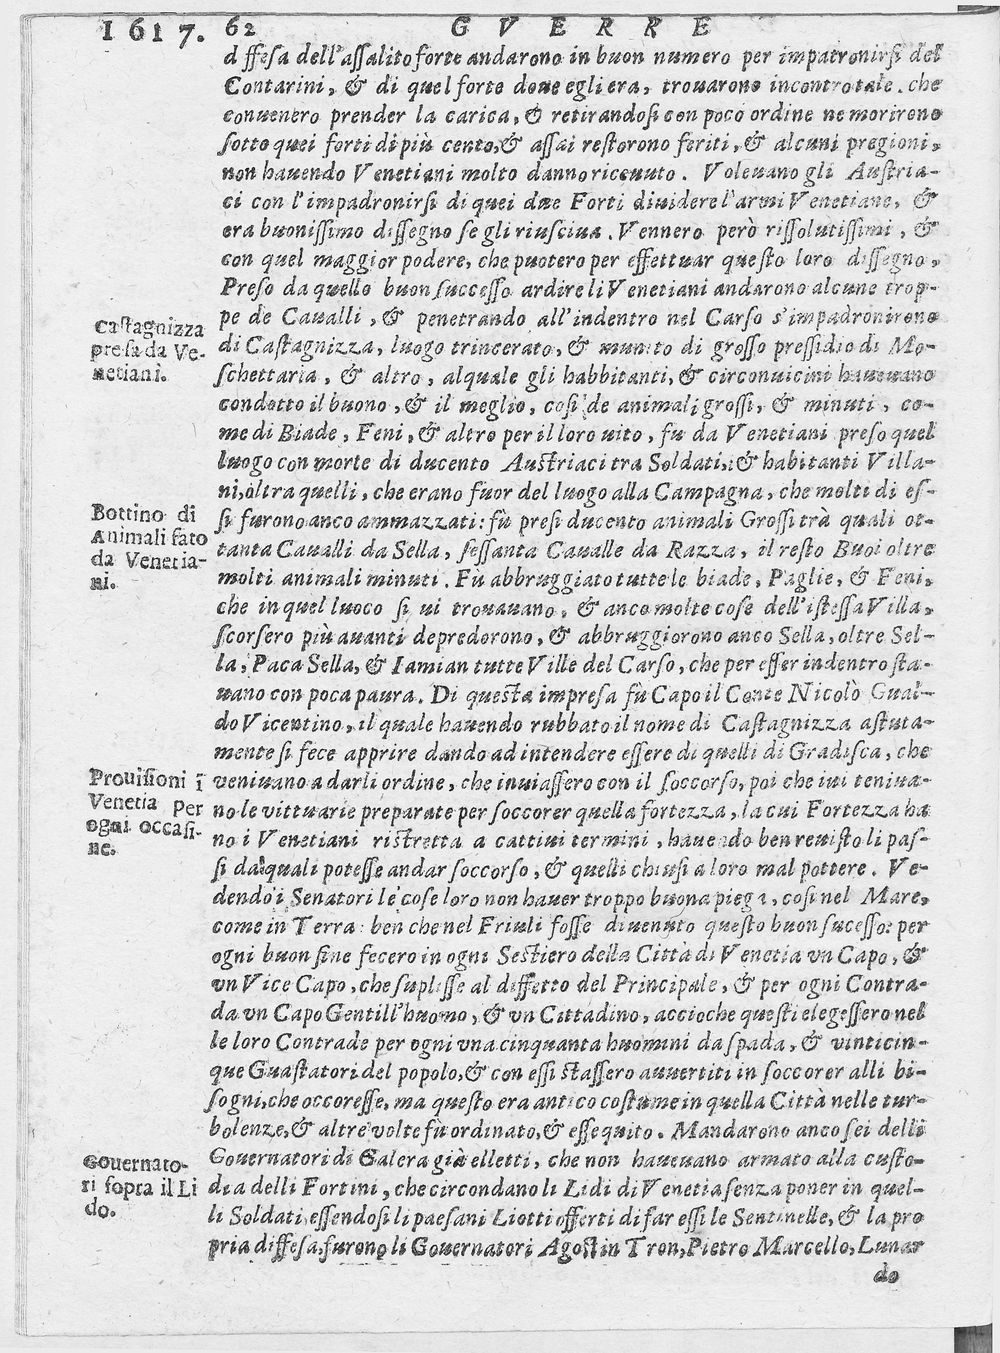 1617. 62 GVERRE
d ffesa dell'assalito forte andarono in buon numero per impatronirsi del
Contarini, & di quel forte doue egli era, trouarono incontro tale, che
conuenero prender la carica, & retirandosi con poco ordine ne morirono
sotto quei forti di più cento, & assai restorono feriti, & alcuni pregioni,
non hauendo Venetiani molto danno riceuuto. Voleuano gli Austria-
ci con l'impadronirsi di quei due Forti diuidere l'armi Venetiane, &
era buonissimo dissegno se gli riusciua. Vennero però rissolutissimi, &
con quel maggior podere, che puotero per effettuar questo loro dissegno,
Preso da quello buon successo ardire li Venetiani andarono alcune trop-
pe de Caualli, & penetrando all'indentro nel Carso s'impadronirono
Castagnizza
presa da Ve-
netiani.
di Castagnizza, luogo trincerato, & munito di grosso pressidio di Mo-
schettaria, & altro, al quale gli habbitanti, & circonuicini haueuano
condotto il buono, & il meglio, cosi de animali grossi, & minuti, co-
me di Biade, Feni, & altro per il loro uito, fu da Venetiani preso quel
luogo con morte di ducento Austriaci tra Soldati, & habitanti Villa-
ni, oltra quelli, che erano fuor del luogo alla Campagna, che molti di es-
Bottino di
Animali fato
da Venetia-
ni.
si furono anco ammazzati: fù presi ducento animali Grossi trà quali ot-
tanta Caualli da Sella, sessanta Caualle da Razza, il resto Buoi oltre
molti animali minuti. Fù abbruggiato tutte le biade, Paglie, & Feni,
che in quel luoco si ui trouauano, & anco molte cose dell'istessa Villa,
scorsero più auanti depredorono, & abbruggiorono anco Sella, oltre Sel-
la, Paca Sella, & Iamian tutte Ville del Carso, che per esser indentro sta-
uano con poca paura. Di questa impresa fù Capo il Conte Nicolò Gual-
do Vicentino, il quale hauendo rubbato il nome di Castagnizza astuta-
mente si fece apprire dando ad intendere essere di quelli di Gradisca, che
Prouisioni ĩ
Venetia per
ogni occasi-
ne.
veniuano a darli ordine, che inuiassero con il soccorso, poi che iui teniua-
no le vittuarie preparate per soccorer quella fortezza, la cui Fortezza ha
no i Venetiani ristretta a cattiui termini, hauendo ben reuisto li pas-
si da quali potesse andar soccorso, & quelli chiusi a loro mal pottere. Ve-
dendo i Senatori le cose loro non hauer troppo buona piega, cosi nel Mare,
come in Terra: ben che nel Friuli fosse diuenuto questo buon sucesso: per
ogni buon fine fecero in ogni Sestiero della Città di Venetia vn Capo, &
vn Vice Capo, che suplisse al diffetto del Principale, & per ogni Contra-
da vn Capo Gentill'huomo, & vn Cittadino, accioche questi elegessero nel
le loro Contrade per ogni vna cinquanta huomini da spada, & vinticin-
que Guastatori del popolo, & con essi stassero auuertiti in soccorer alli bi-
sogni, che occoresse, ma questo era antico costume in quella Città nelle tur-
bolenze, & altre volte fù ordinato, & essequito. Mandarono anco sei delli
Gouernato-
ri sopra il Li
do.
Gouernatori di Galera già elletti, che non haueuano armato alla custo-
dia delli Fortini, che circondano li Lidi di Venetia senza poner in quel-
li Soldati, essendosi li paesani Liotti offerti di far essi le Sentinelle, & la pro
pria diffesa, furono li Gouernatori Agostin Tron, Pietro Marcello, Lunar
do